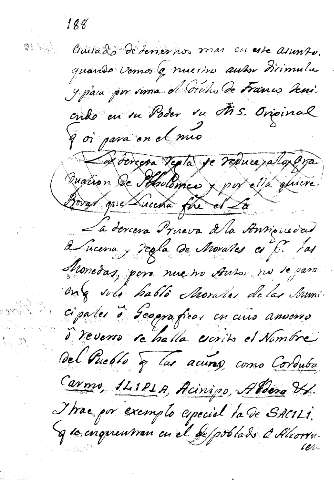 188
cusado detenernos mas en este asunto,
quando vemos q̃ nuestro autor disimula
y pasa por suma el dicho de Franco teni
endo en su Poder su MS. Original
q̃ oi para en el mio
La tercera regla se reduce a la Gra
duacion de Ptholomeo y por ella quiere
provar que Lucena fue el La
La tercera Prueva de la Antiguedad
de Lucena y regla de Morales es P. las
Monedas, pero nuestro Autor no se paro
en q̃ solo habló Morales de las Muni
cipales ô Geograficas en cuio anverso
ô reverso se halla escrito el Nombre
del Pueblo q̃ las acuñó, como Corduba
Carmo, ILIPLA, Acinipo, Abdera &c.
Y trae por exemplo especial la de SACILI
q̃ se enquentran en el despoblado de Alcorru
cen